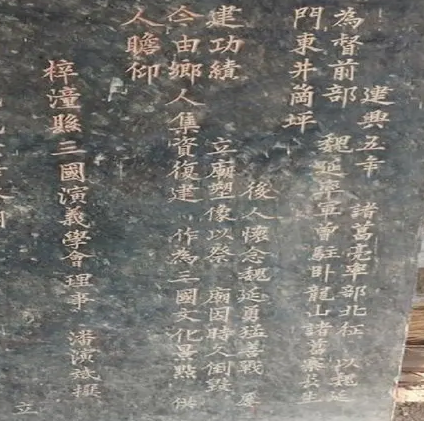 建興五年 諸葛亮率部北征 以魏延
為督前部 魏延率軍曾駐卧龍山諸葛寨長生
門東井箇坪
後人懷念魏延勇猛善戰 屢
建功績 立廟塑像以祭 廟因時久倒毀
今由鄉人集資復建 作為三國文化景點 供
人瞻仰
梓潼縣三國演義學會理事 潘演斌撰
立